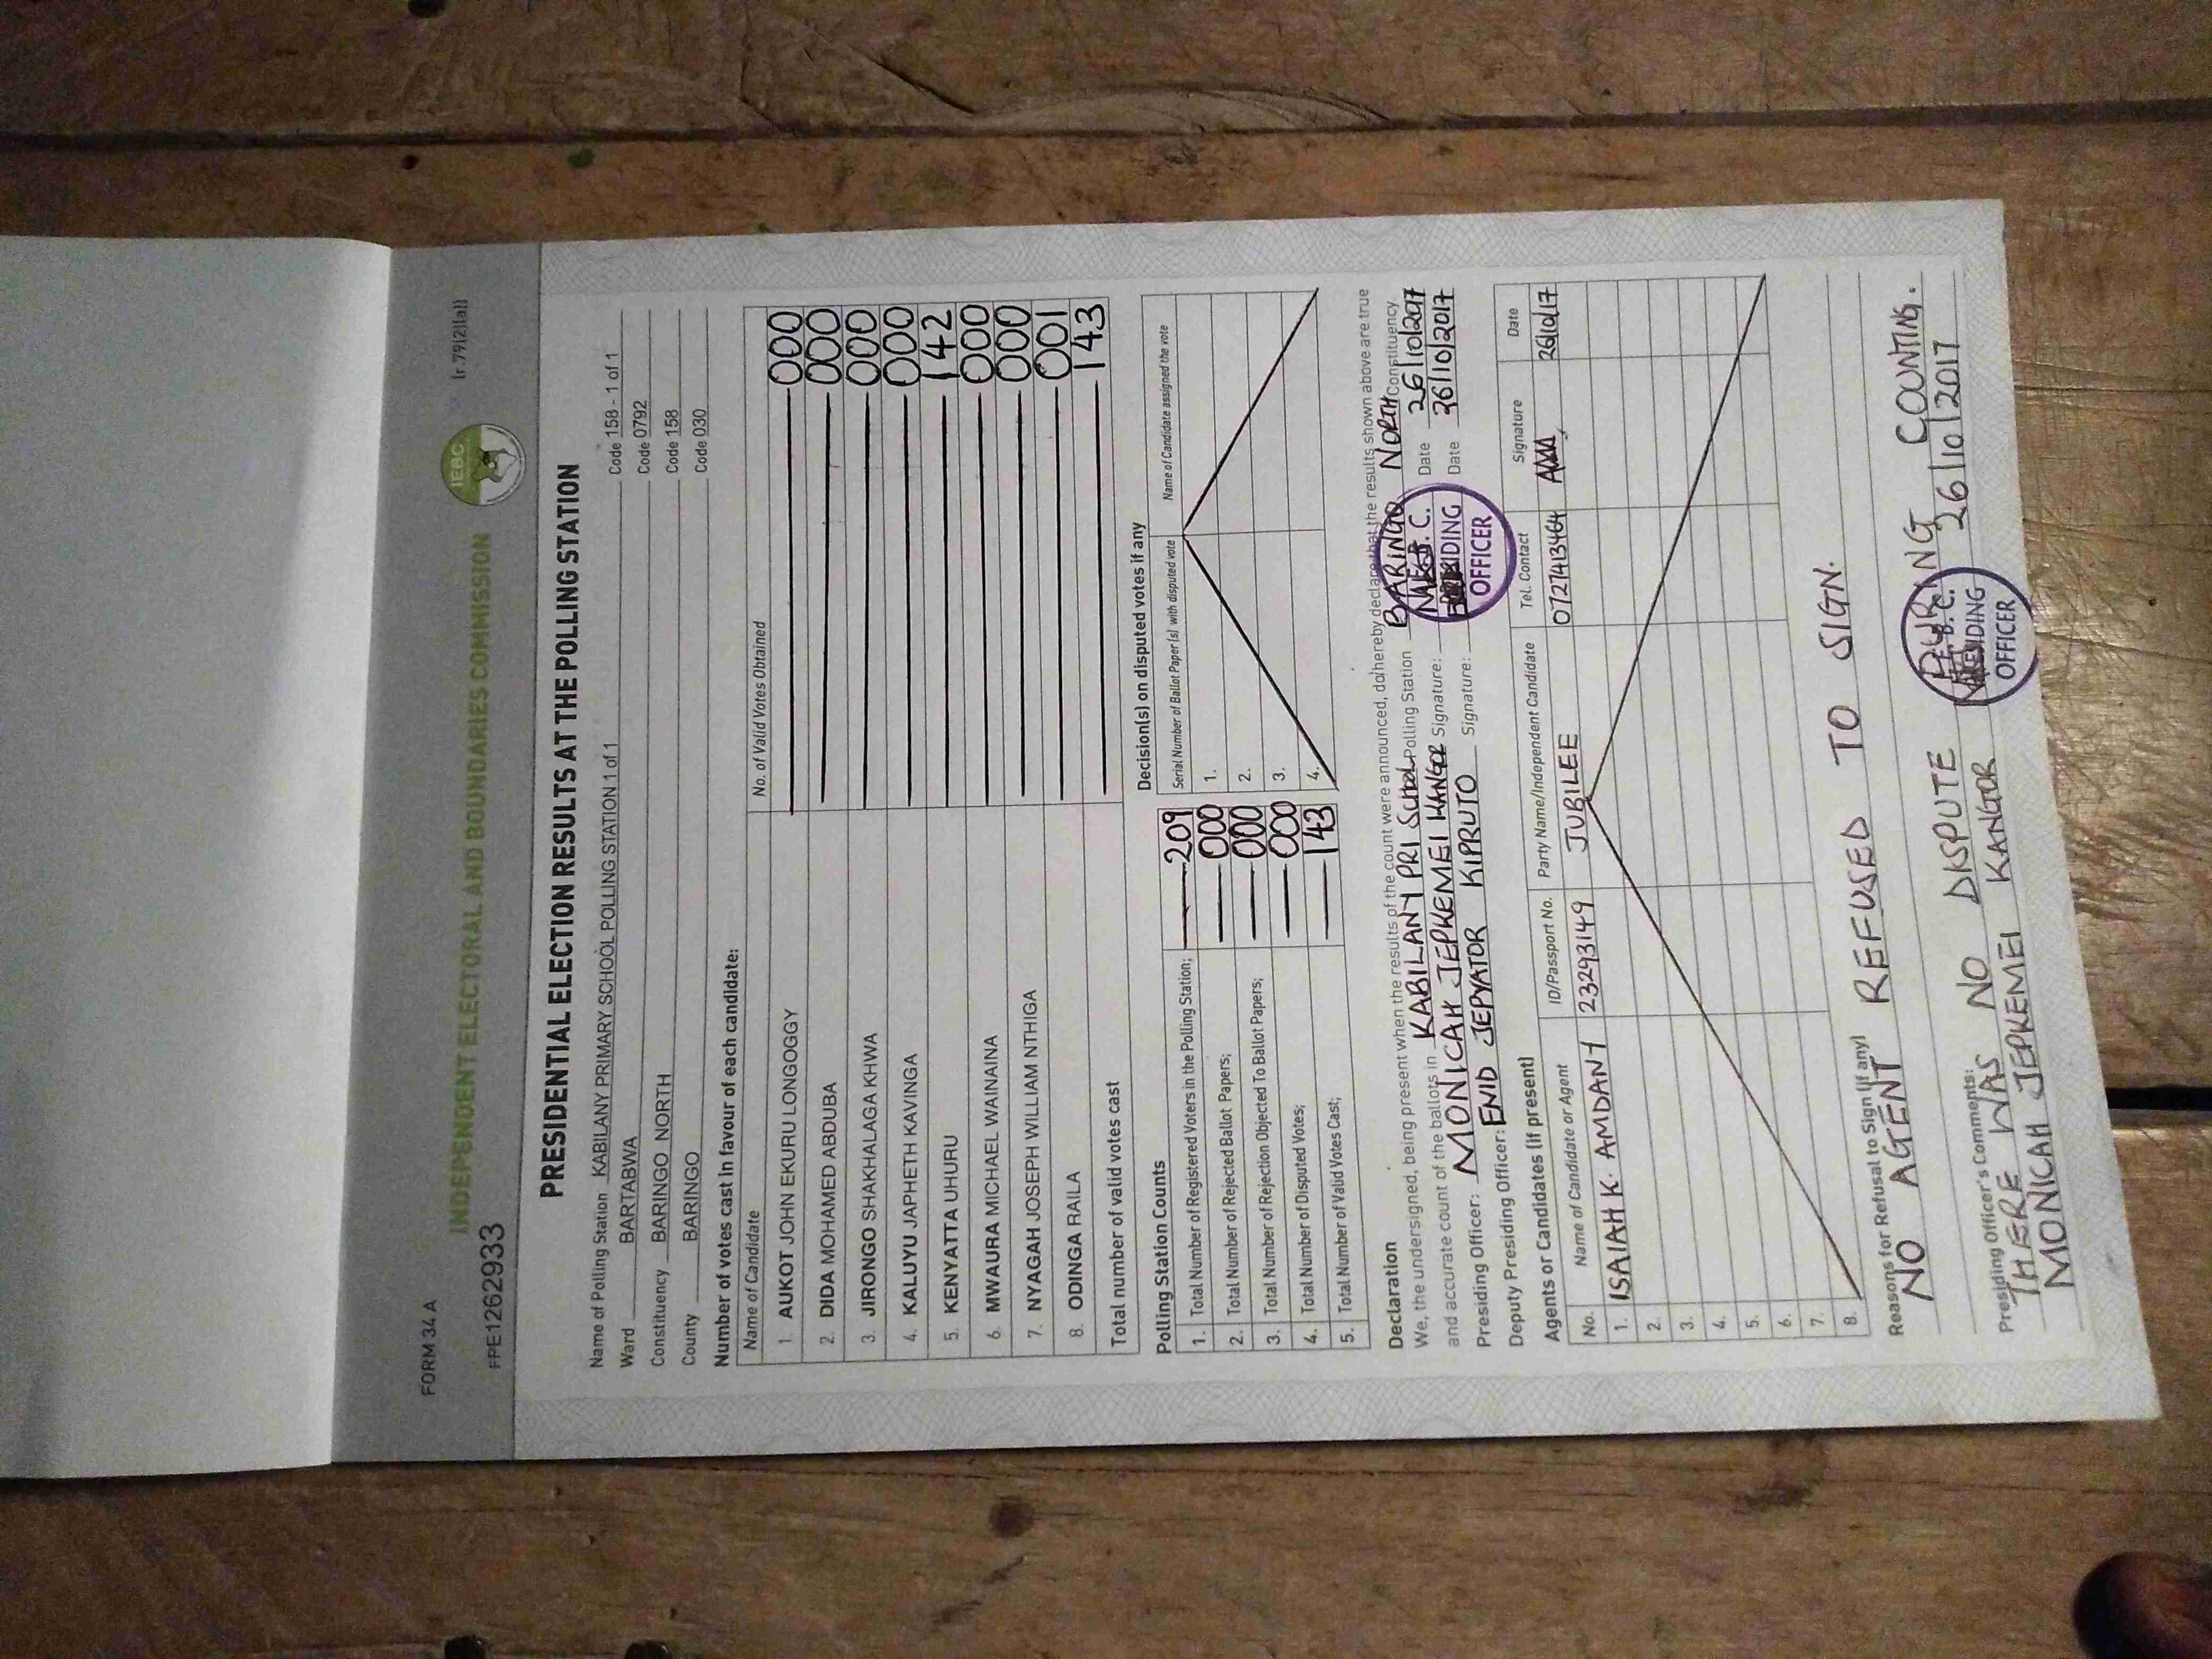 FORM 34 A
(r.79(2)(a))
INDEPENDENT ELECTORAL AND BOUNDARIES COMMISSION
IEBC
FPE1262933
PRESIDENTIAL ELECTION RESULTS AT THE POLLING STATION
Name of Polling Station KABILANY PRIMARY SCHOOL POLLING STATION 1 of 1 Code 158 - 1 of 1
Ward BARTABWA Code 0792
Constituency BARINGO NORTH Code 158
County BARINGO Code 030
Number of votes cast in favour of each candidate:
Name of Candidate No. of Valid Votes Obtained
1. AUKOT JOHN EKURU LONGOGGY 000
2. DIDA MOHAMED ABDUBA 000
3. JIRONGO SHAKHALAGA KHWA 000
4. KALUYU JAPHETH KAVINGA 000
5. KENYATTA UHURU 142
6. MWAURA MICHAEL WAINAINA 000
7. NYAGAH JOSEPH WILLIAM NTHIGA 000
8. ODINGA RAILA 001
Total number of valid votes cast 143
Polling Station Counts
1. Total Number of Registered Voters in the Polling Station; 209
2. Total Number of Rejected Ballot Papers; 000
3. Total Number of Rejection Objected To Ballot Papers; 000
4. Total Number of Disputed Votes; 000
5. Total Number of Valid Votes Cast; 143
Decision(s) on disputed votes if any
Serial Number of Ballot Paper (s) with disputed vote Name of Candidate assigned the vote
1.
2.
3.
4.
Declaration
We, the undersigned, being present when the results of the count were announced, do hereby declare that the results shown above are true
and accurate count of the ballots in KABILANY PRI School Polling Station BARINGO NORTH Constituency
Presiding Officer: MONICAH JEPKEMEI KANGOR Signature: Date 26/10/2017
Deputy Presiding Officer: ENID JEPYATOR KIPRUTO Signature: Date 36/10/2017
PRESIDING
OFFICER
Agents or Candidates (if present)
No. Name of Candidate or Agent ID/Passport No. Party Name/Independent Candidate Tel. Contact Signature Date
1. ISAIAH K. AMDANY 23293149 JUBILEE 0727413464 26/10/17
2.
3.
4.
5.
6.
7.
8.
Reasons for Refusal to Sign (if any)
NO AGENT REFUSED TO SIGN.
Presiding Officer's Comments:
THERE WAS NO DISPUTE DURING COUNTING.
MONICAH JEPKEMEI KANGOR 26/10/2017
PRESIDING
OFFICER